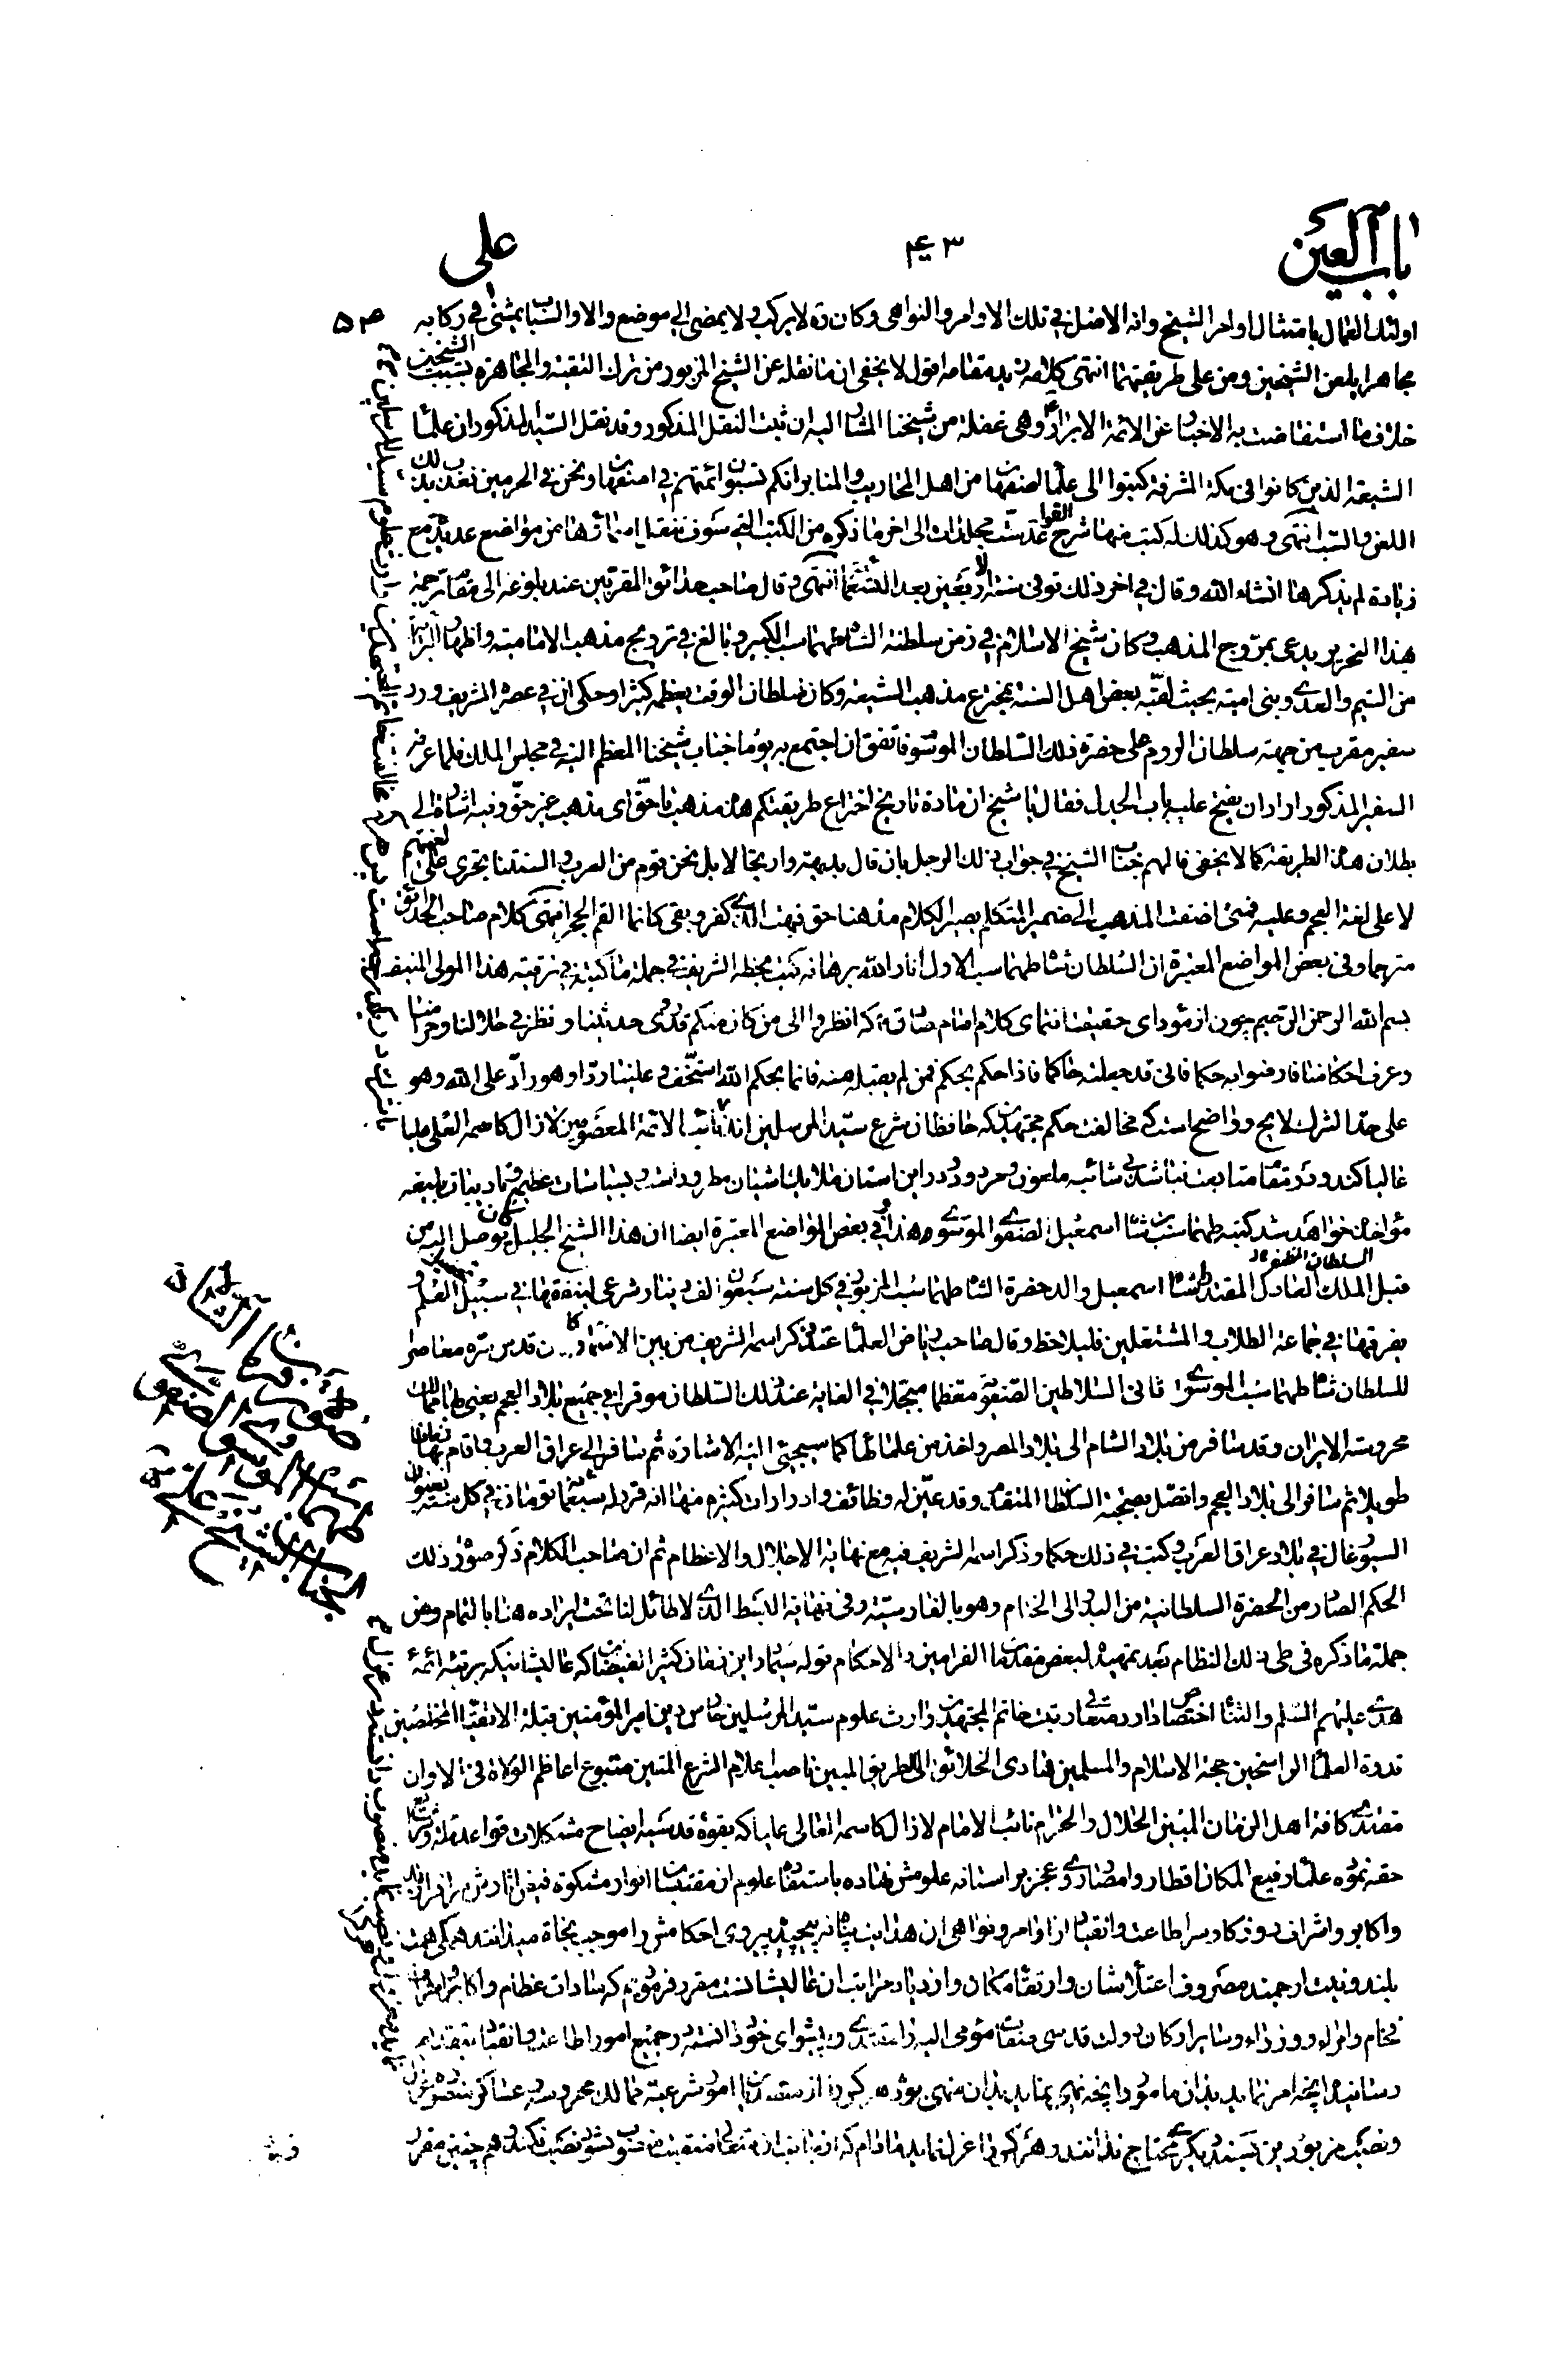 باب العين
۴۰۳
علی
اولئك العمال بامتثال اوامر الشيخ وانه الاصل في تلك الاوامر والنواهى وكان ره لا يركب ولا يمضى الى موضع والا والسباب يمشى في ركابه
مجاهرا بلعن الشيخين ومن على طريقتهما انتهى كلامه زيد مقامه اقول لا يخفى ان ما نقله عن الشيخ المزبور من ترك التقية والمجاهرة بسب الشيخين
خلاف ما استفاضت به الاخبار عن الائمة الابرار ع وهى غفلة من شيخنا المشار اليه ان ثبت النقل المذكور وقد نقل السيد المذكور ان علماء
الشيعة الذين كانوا في مكة المشرفة كتبوا الى علماء اصفهان من اهل المحاريب والمنابر انكم تسبون ائمتهم في اصفهان ونحن في الحرمين نعذب بذلك
اللعن والسب انتهى وهو كذلك له كتب منها شرح القواعد ست مجلدات الى اخر ما ذكره من الكتب التي سوف ننقل اسمائها من مواضع عديدة مع
زيادة لم يذكرها انشاء الله وقال في اخر ذلك توفى سنة الاربعين بعد التسعمائة انتهى وقال صاحب حدائق المقربين عند بلوغه الى مقام ترجمة
هذا النحرير يدعى بمروج المذهب وكان شيخ الاسلام في زمن سلطنة الشاه طهماسب الكبير وبالغ في ترويج مذهب الامامية واظهار البرائة
من التيم والعدى وبنى امية بحيث لقبه بعض اهل السنة بمخترع مذهب الشيعة وكان سلطان الوقت يعظمه كثيرا وحكى ان في عصره الشريف ورد
سفير مقرب من جهة سلطان الروم على حضرة ذلك السلطان الموسوم فاتفق ان اجتمع به يوما جناب شيخنا المعظم اليه في مجلس الملك فلما عرفه
السفير المذكور اراد ان يفتح عليه باب الجدل فقال يا شيخ ان مادة تاريخ اختراع طريقتكم هذه مذهب ناحق اى مذهب غير حق وفيه اشارة الى
بطلان هذه الطريقة كما لا يخفى فالهم جناب الشيخ في جواب ذلك الرجل بان قال بديهة وارتجالا بل نحن قوم من العرب والسنتنا تجرى على لغتهم
لا على لغة العجم وعليه فمتى اضفت المذهب الى ضمير المتكلم يصير الكلام مذهبنا حق فبهت الذى كفر وبقى كانما القم الحجر انتهى كلام صاحب الحدائق
مترجما وفى بعض المواضع المعتبرة ان السلطان شاه طهماسب الاول انار الله برهانه كتب بخطه الشريف في جملة ما كتبه في ترقية هذا المولى المنيف
بسم الله الرحمن الرحيم چون از مؤداى حقيقت انتماى كلام امام صادق ع كه انظروا الى من كان منكم قد روى حديثنا ونظر في حلالنا وحرامنا
وعرف احكامنا فارضوا به حكما فانى قد جعلته حاكما فاذا حكم بحكم فمن لم يقبله منه فانما بحكم الله استخف وعلينا رد وهو راد على الله وهو
على حد الشرك لايح وواضح است كه مخالفت حكم مجتهدين كه حافظان شرع سيد المرسلين اند نائب الائمة المعصومين لازال كاسمه العلى عليا
عاليا كند و در مقام متابعت نباشد بى شائبه ملعون و مردود در اين استان ملايك اشيان مطرود است و بسياسات عظيمه و تاديبات بليغه
مؤاخذه خواهد شد كتبه طهماسب بن شاه اسمعيل الصفوى الموسوى هذا وفي بعض المواضع المعتبرة ايضا ان هذا الشيخ الجليل كان يوصل اليه من
قبل الملك العادل المقتدر السلطان المظفر شاه اسمعيل والد حضرة الشاه طهماسب المزبور في كل سنة سبعون الف دينار شرعى لينفقها في سبيل العلم و
يفرقها في جماعة الطلاب والمشتغلين فليلاحظ وقال صاحب رياض العلماء عند ذكر اسمه الشريف من بين الاسماء وكان قدس سره معاصرا
للسلطان شاه طهماسب الموسوى ثانى السلاطين الصفوية معظما مبجلا في الغاية عند ذلك السلطان موقرا في جميع بلاد العجم يعنى بها ممالك
محروسة الايران وقد سافر من بلاد الشام الى بلاد المصر واخذ من علمائها كما سيجيئ اليه الاشارة ثم سافر الى عراق العرب واقام بها زمانا
طويلا ثم سافر الى بلاد العجم واتصل بصحبة السلطان المتقدم وقد عين له وظائف وادرارات كثيرة منها انه قرر له سبعمائة تومان في كل سنة بعنوان
السيورغال في بلاد عراق العرب وكتب في ذلك حكما وذكر اسمه الشريف فيه مع نهاية الاجلال والاعظام ثم ان صاحب الكلام ذكر صورة ذلك
الحكم الصادر من الحضرة السلطانية من البدو الى الختام وهو بالفارسية وفى نهاية البسط الذى لا طائل لنا تحت ايراده هنا بالتمام ومن
جملة ما ذكره في طى ذلك النظام بعد تمهيده لبعض مقدمات الفرامين والاحكام قوله سيما در اين زمان كثير الفيضان كه عاليشانيكه برتبه ائمه
هدى عليهم السلام والثناء اختصاص دارد متعالى رتبت خاتم المجتهدين وارث علوم سيد المرسلين حارس دين امير المؤمنين قبلة الاتقياء المخلصين
قدوة العلماء الراسخين حجة الاسلام والمسلمين هادى الخلائق الى الطريق المبين ناصب اعلام الشرع المتين متبوع اعاظم الولاة في الاوان
مقتدى كافة اهل الزمان المبين الحلال والحرام نائب الامام لازال كاسمه العالى عاليا كه بقوه قدسيه ايضاح مشكلات قواعد ملت و شرايع
حقه نموده علماء رفيع المكان اقطار و امصار روى عجز بر استانه علومش نهاده باستفاده علوم از مقتبسات انوار مشكوة فيض اثارش سرافرازند
و اكابر و اشراف روزگار سر اطاعت و انقياد از اوامر و نواهى ان هدايت پناه نپيچيده پيروى احكامش را موجب نجاة ميدانند همگى همت
بلند و نيت ارجمند مصروف اعتلاء شان و ارتقاء مكان و ازدياد مراتب ان عاليشانست مقرر فرموديم كه سادات عظام و اكابر و اشراف
فخام و امراء و وزراء و ساير اركان دولت قدسى صفات مؤمى اليه را مقتدى و پيشواى خود دانسته در جميع امور اطاعت و انقياد بتقديم
رسانيده انچه امر نمايد بدان مامور و انچه نهى نمايد بدان منهى بوده هر كس را از متصديان امور شرعيه ممالك محروسه و عساكر منصوره عزل
و نصب مزبورين بسند ديگرى محتاج ندانند و هر كس را عزل نمايد مادام كه از جانب ان متعالى منقبت منصوب نشود نصب نكنند و هم چنين مقرر